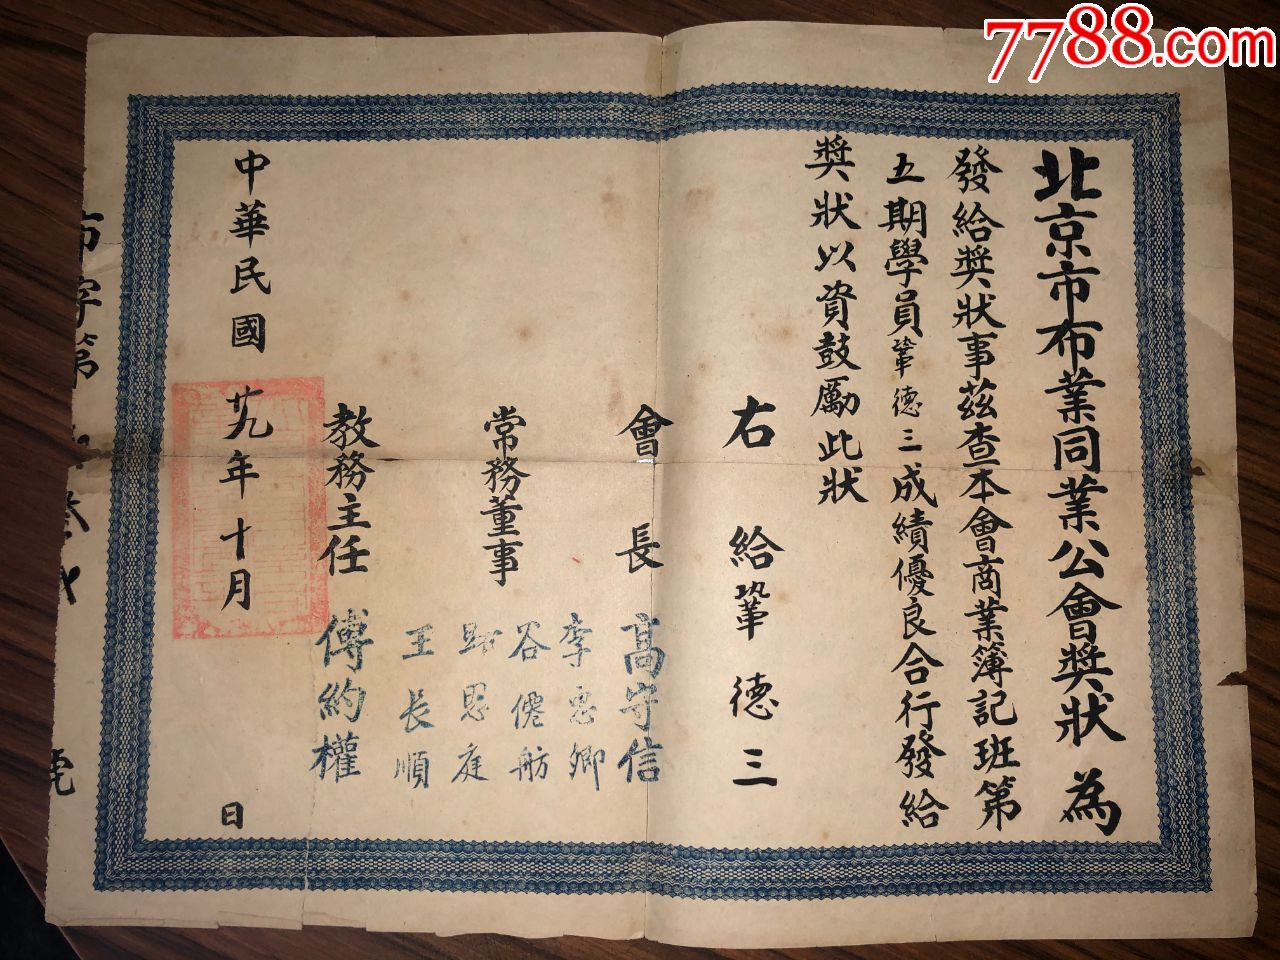 7788.com
北京市布業同業公會獎狀 為
發給獎狀事茲查本會商業簿記班第
五期學員鞏德三成績優良合行發給
獎狀以資鼓勵此狀
右 給 鞏德三
會長 高守信
常務董事
李惠卿
谷僊舫
恩庭
王長順
教務主任 傅約權
中華民國廿九年十月 日
布字第 號